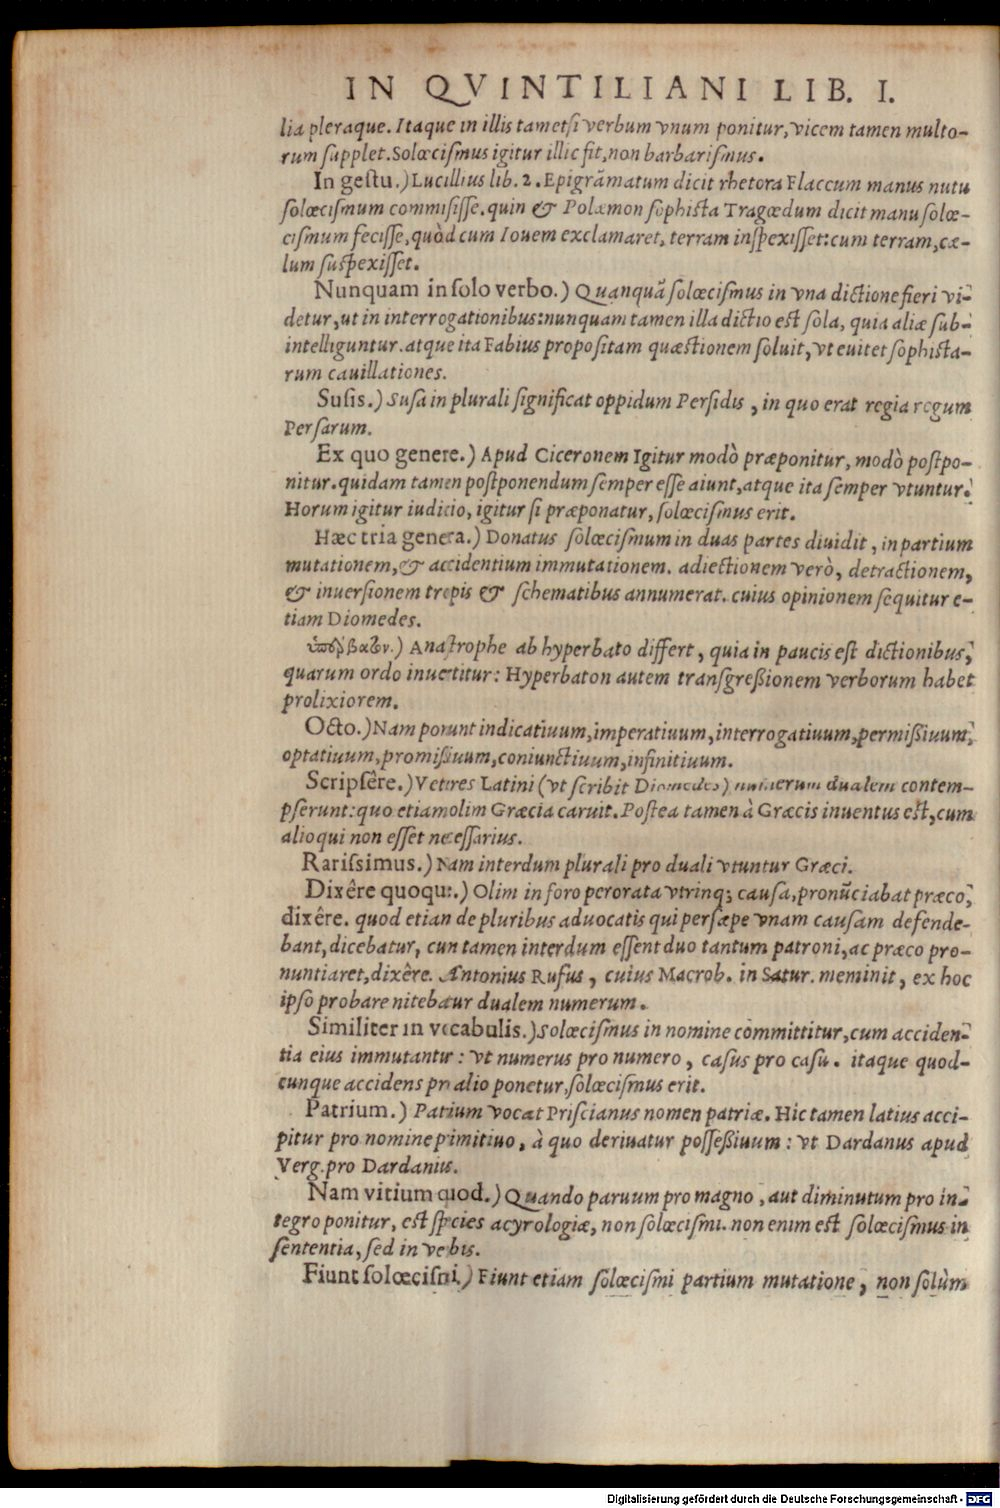 IN QVINTILIANI LIB. I.
lia pleraque. Itaque in illis tametſi verbum vnum ponitur, vicem tamen multo-
rum ſupplet. Solœciſmus igitur illic fit, non barbariſmus.
In geſtu.) Lucillius lib. 2. Epigrāmatum dicit rhetora Flaccum manus nutu
ſolœciſmum commiſiſſe. quin & Polæmon ſophiſta Tragœdum dicit manu ſolœ-
ciſmum feciſſe, quòd cum Iouem exclamaret, terram inſpexiſſet: cum terram, cæ-
lum ſuſpexiſſet.
Nunquam in ſolo verbo.) Quanquā ſolœciſmus in vna dictione fieri vi-
detur, ut in interrogationibus: nunquam tamen illa dictio eſt ſola, quia aliæ ſub-
intelliguntur. atque ita Fabius propoſitam quæſtionem ſoluit, vt euitet ſophiſta-
rum cauillationes.
Suſis.) Suſa in plurali ſignificat oppidum Perſidis, in quo erat regia regum
Perſarum.
Ex quo genere.) Apud Ciceronem Igitur modò præponitur, modò poſtpo-
nitur. quidam tamen poſtponendum ſemper eſſe aiunt, atque ita ſemper vtuntur.
Horum igitur iudicio, igitur ſi præponatur, ſolœciſmus erit.
Hæc tria genera.) Donatus ſolœciſmum in duas partes diuidit, in partium
mutationem, & accidentium immutationem. adiectionem verò, detractionem,
& inuerſionem tropis & ſchematibus annumerat. cuius opinionem ſequitur e-
tiam Diomedes.
ὑπέρβατον.) Anaſtrophe ab hyperbato differt, quia in paucis eſt dictionibus,
quarum ordo inuertitur: Hyperbaton autem tranſgreßionem verborum habet
prolixiorem.
Octo.) Nam ponunt indicatiuum, imperatiuum, interrogatiuum, permißiuum,
optatiuum, promißiuum, coniunctiuum, infinitiuum.
Scripſêre.) Veteres Latini (vt ſcribit Diomedes) numerum dualem contem-
pſerunt: quo etiam olim Græcia caruit. Poſtea tamen à Græcis inuentus eſt, cum
alioqui non eſſet neceſſarius.
Rariſsimus.) Nam interdum plurali pro duali vtuntur Græci.
Dixêre quoque.) Olim in foro perorata vtrinq; cauſa, pronūciabat præco,
dixêre. quod etian de pluribus aduocatis qui perſæpe vnam cauſam defende-
bant, dicebatur, cun tamen interdum eſſent duo tantum patroni, ac præco pro-
nuntiaret, dixêre. Antonius Rufus, cuius Macrob. in Satur. meminit, ex hoc
ipſo probare nitebatur dualem numerum.
Similiter in vocabulis.) Solœciſmus in nomine committitur, cum acciden-
tia eius immutantur: vt numerus pro numero, caſus pro caſu. itaque quod-
cunque accidens pro alio ponetur, ſolœciſmus erit.
Patrium.) Patrium vocat Priſcianus nomen patriæ. Hic tamen latius acci-
pitur pro nomine primitiuo, à quo deriuatur poſſeßiuum: vt Dardanus apud
Verg. pro Dardanius.
Nam vitium quod.) Quando paruum pro magno, aut diminutum pro in-
tegro ponitur, eſt ſpecies acyrologiæ, non ſolœciſmi. non enim eſt ſolœciſmus in
ſententia, ſed in verbis.
Fiunt ſolœciſmi.) Fiunt etiam ſolœciſmi partium mutatione, non ſolùm
Digitalisierung gefördert durch die Deutsche Forschungsgemeinschaft - DFG